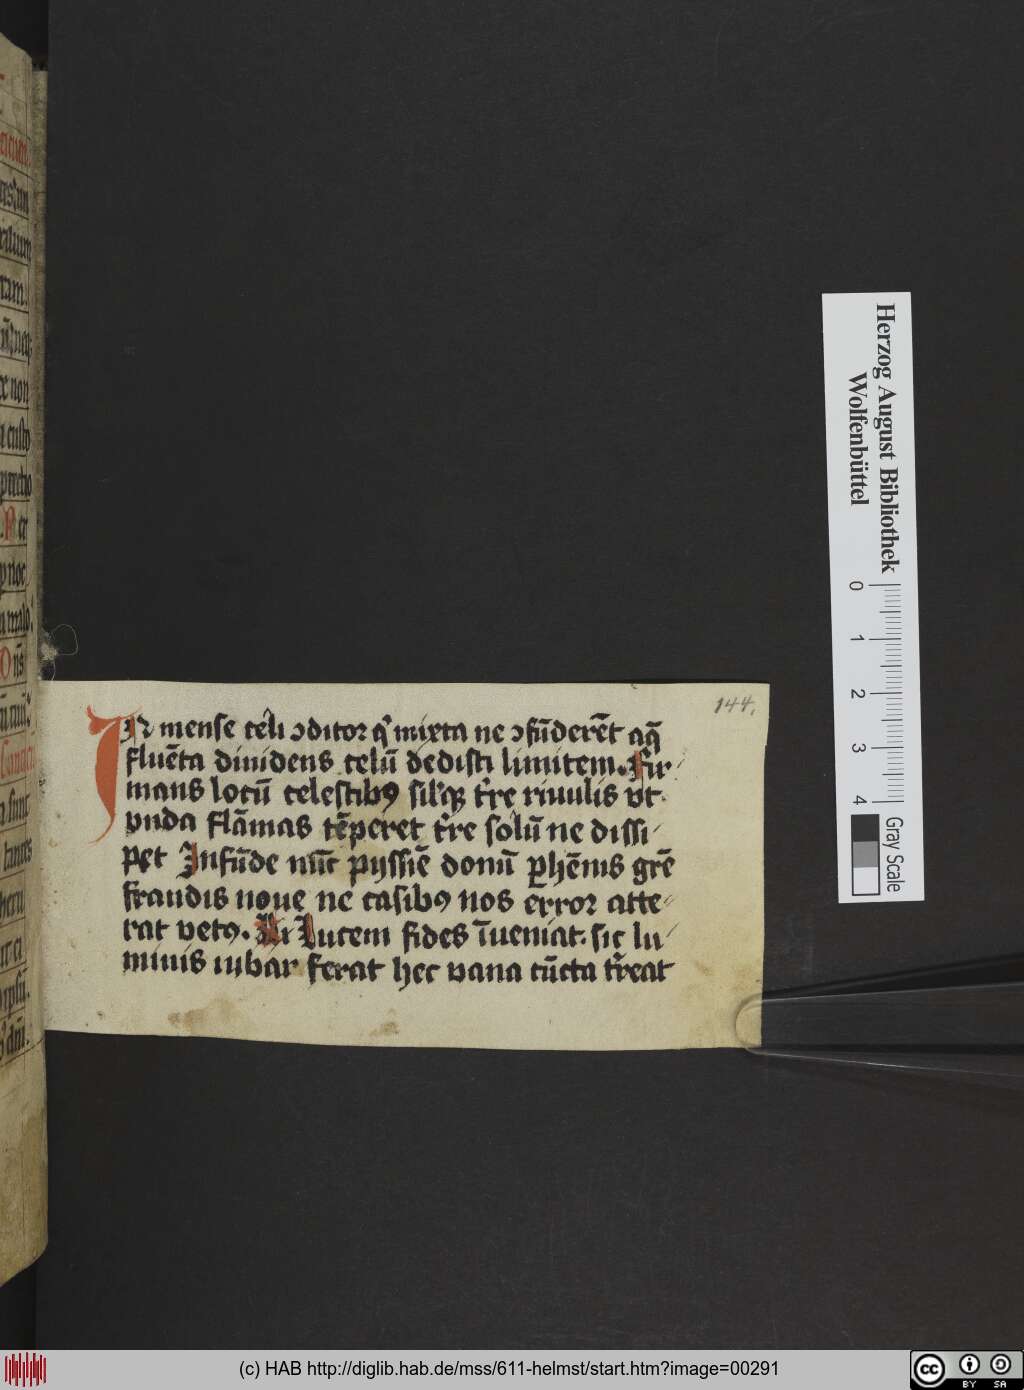 144.
IN mense celi ɔditor qͥ mixta ne ɔfūderēt aq̄
fluēta diuidens celū dedisti limitem. Fir
mans locū celestibꝰ sil'qꝫ t'̄re riuulis vt
vnda flāmas tēperet t'̄re solū ne dissi
pet Infūde nūc pyssīe donū ꝑhēnis grē
fraudis noue ne casibꝰ nos error atte
rat vetꝰ. At Lucem fides īueniat. sic lu
minis iubar ferat hec vana cūcta t'̄reat
Herzog August Bibliothek
Wolfenbüttel
0 1 2 3 4
Gray Scale
(c) HAB http://diglib.hab.de/mss/611-helmst/start.htm?image=00291
cc BY SA